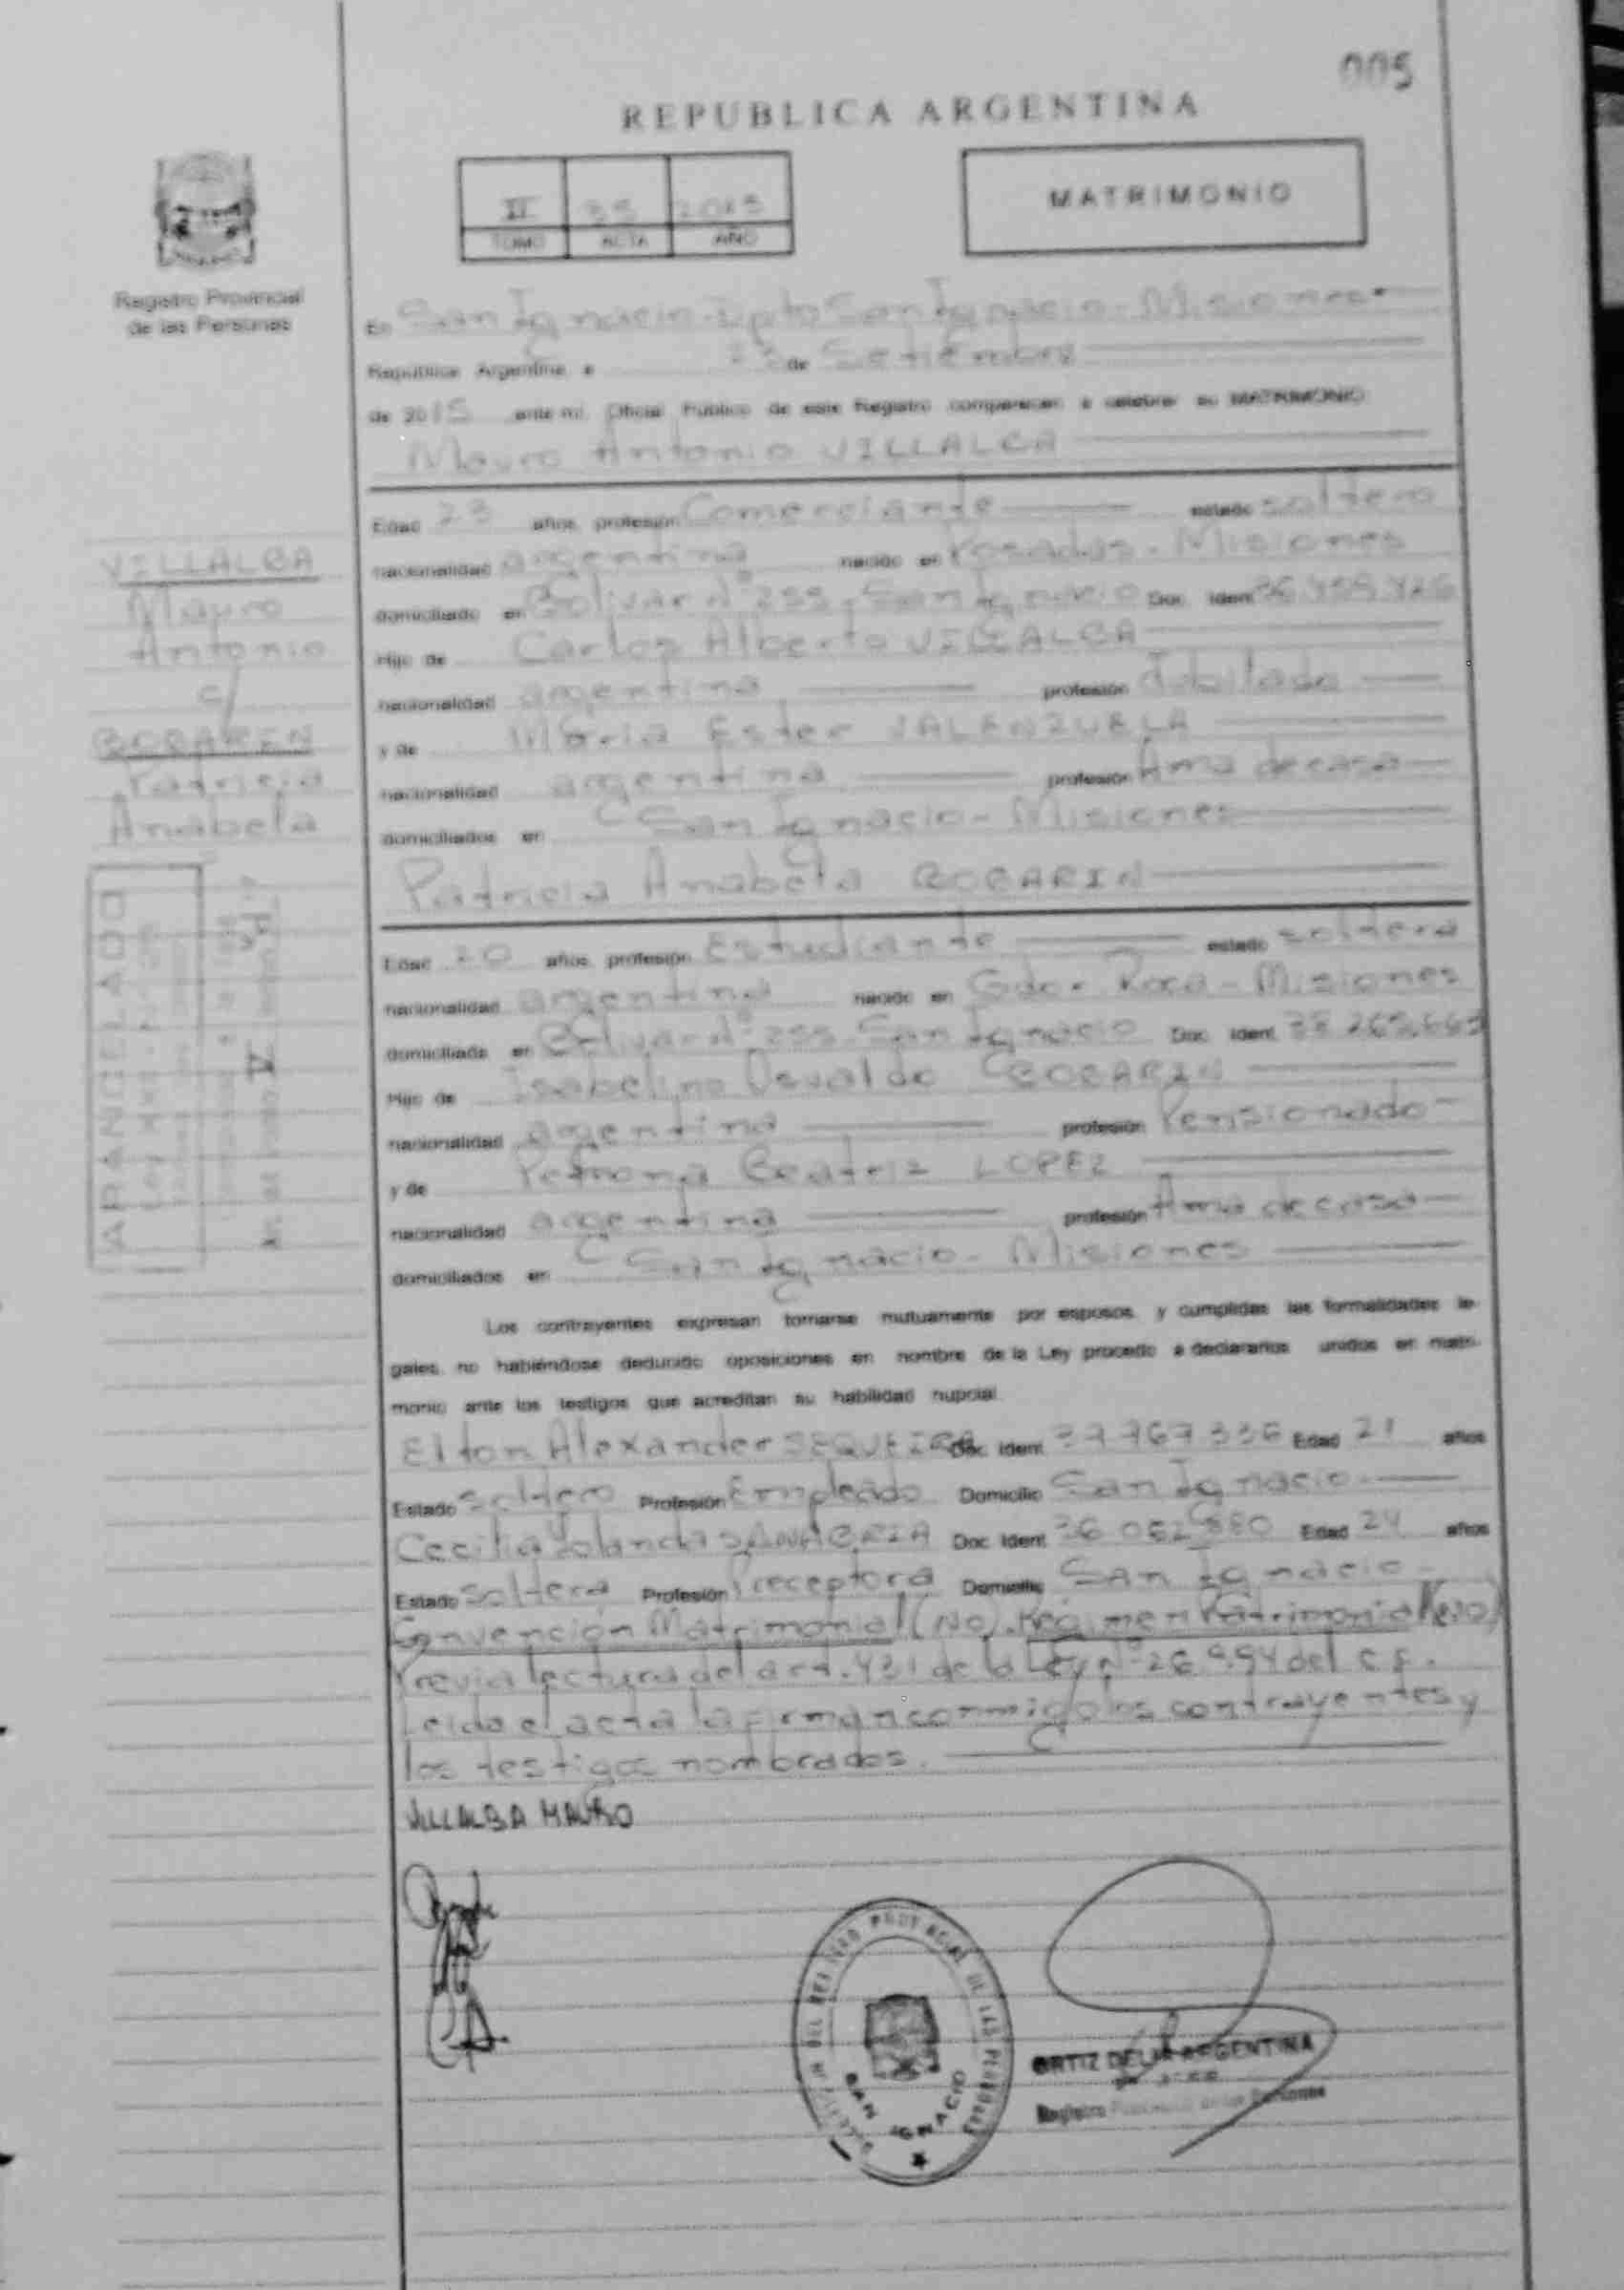 005
REPUBLICA ARGENTINA
II 35 2015
TOMO ACTA AÑO
MATRIMONIO
Registro Provincial
de las Personas
En San Ignacio-Dpto San Ignacio-Misiones
República Argentina a 23 de Setiembre
de 2015 ante mí Oficial Público de este Registro comparecen a celebrar su MATRIMONIO
Mauro Antonio VILLALBA
Edad 23 años profesión Comerciante estado soltero
nacionalidad argentina nacido en Posadas-Misiones
domiciliado en Bolivar Nº 255-San Ignacio Doc. Ident.
Hijo de Carlos Alberto VILLALBA
nacionalidad argentina profesión Jubilado
y de María Ester VALENZUELA
nacionalidad argentina profesión Ama de casa
domiciliados en San Ignacio-Misiones
Patricia Anabela BOBARIN
Edad 20 años profesión Estudiante estado soltera
nacionalidad argentina nacido en Gdor. Roca-Misiones
domiciliada en Bolivar Nº 255-San Ignacio Doc. Ident.
Hijo de Isabelino Osvaldo BOBARIN
nacionalidad argentina profesión Pensionado
y de Petrona Beatriz LOPEZ
nacionalidad argentina profesión Ama de casa
domiciliados en San Ignacio-Misiones
Los contrayentes expresan tomarse mutuamente por esposos, y cumplidas las formalidades le-
gales, no habiéndose deducido oposiciones en nombre de la Ley procedo a declararlos unidos en matri-
monio ante los testigos que acreditan su habilidad nupcial.
Elton Alexander SEQUEIRA Doc. Ident. 37 767 336 Edad 21 años
Estado soltero Profesión Empleado Domicilio San Ignacio
Cecilia Yolanda SANABRIA Doc. Ident. 36 062 880 Edad 24 años
Estado soltera Profesión Preceptora Domicilio San Ignacio
Convención Matrimonial (No). Régimen Patrimonial (No)
Previa lectura del art. 431 de la Ley Nº 26.994 del
Leida el acta la firman conmigo los contrayentes y
los testigos nombrados.
VILLALBA
Mauro
Antonio
c/
BOBARIN
Patricia
Anabela
ARANCELADO
VILLALBA MAURO
DEL REGISTRO PROVINCIAL DE LAS PERSONAS
SAN IGNACIO
ORTIZ DELIA ARGENTINA
Registro Provincial de las Personas